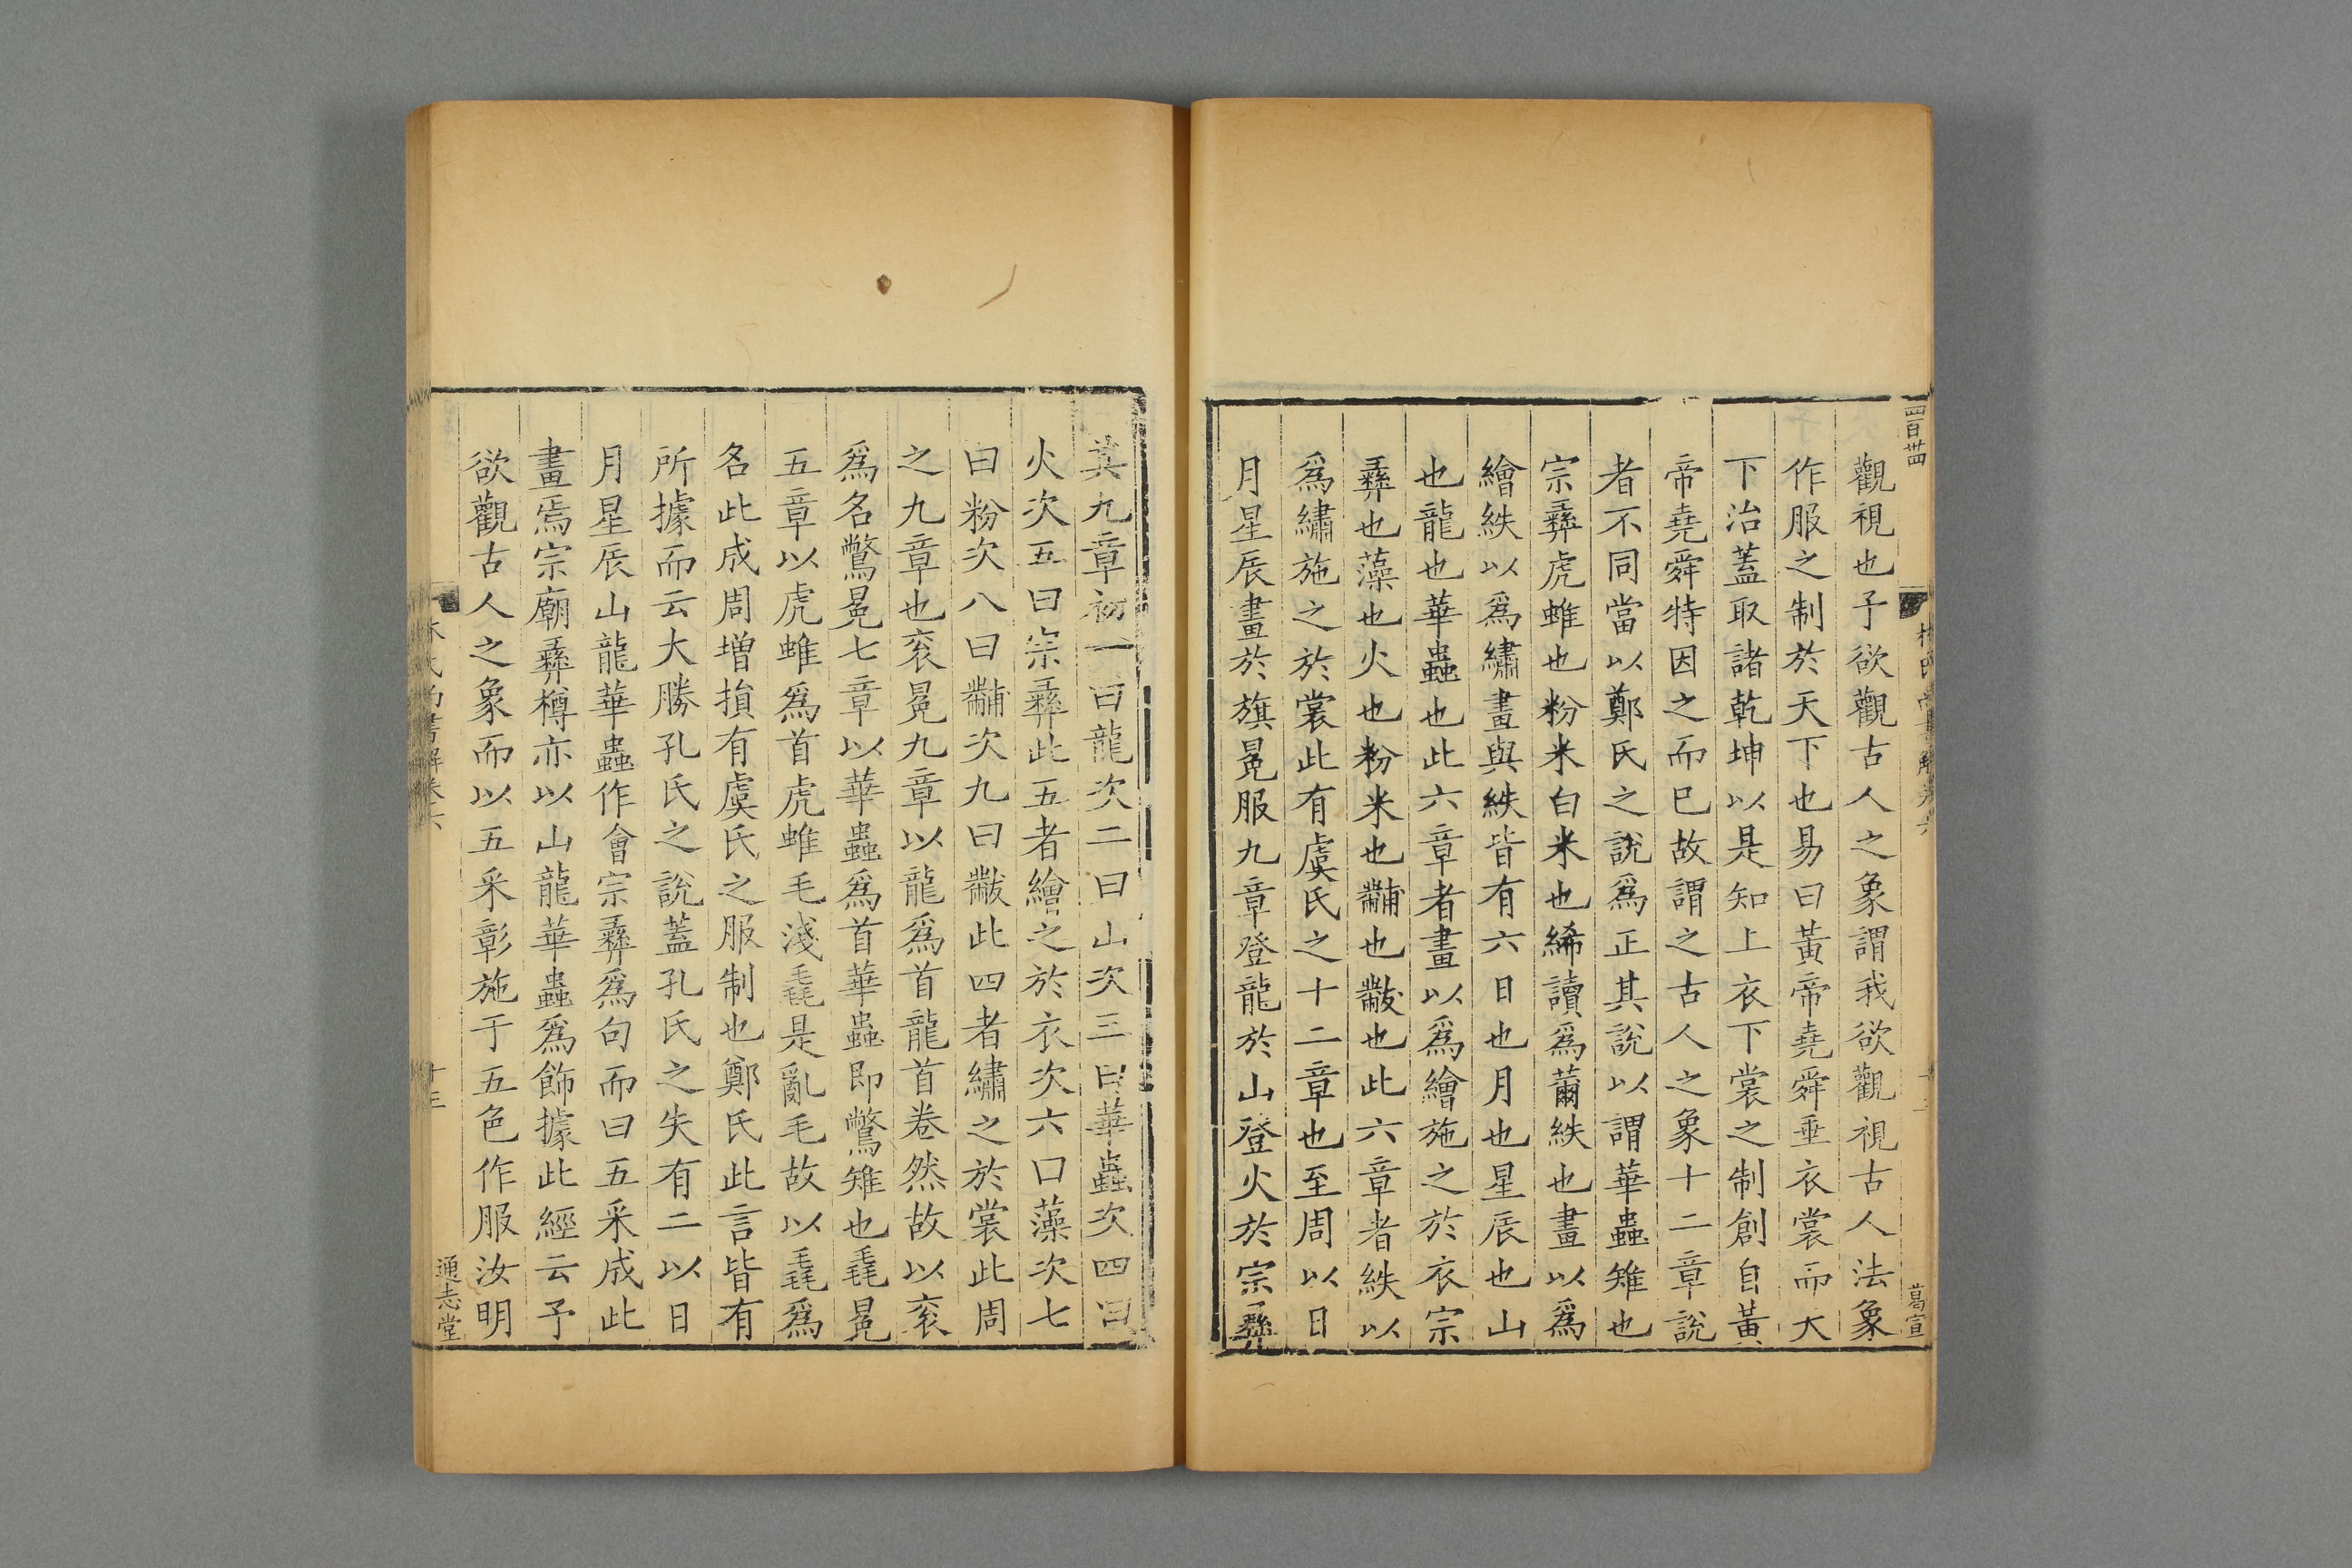 四百卅四
觀視也予欲觀古人之象謂我欲觀視古人法象
作服之制於天下也易曰黃帝堯舜垂衣裳而天
下治蓋取諸乾坤以是知上衣下裳之制創自黃
帝堯舜特因之而已故謂之古人之象十二章說
者不同當以鄭氏之說爲正其說以謂華蟲雉也
宗彝虎蜼也粉米白米也絺讀爲黹紩也畫以爲
繪紩以爲繡畫與紩皆有六日也月也星辰也山
也龍也華蟲也此六章者畫以爲繪施之於衣宗
彝也藻也火也粉米也黼也黻也此六章者紩以
爲繡施之於裳此有虞氏之十二章也至周以日
月星辰畫於旗冕服九章登龍於山登火於宗彝
葛宣
其九章初一曰龍次二曰山次三曰華蟲次四曰
火次五曰宗彝此五者繪之於衣次六曰藻次七
曰粉次八曰黼次九曰黻此四者繡之於裳此周
之九章也衮冕九章以龍爲首龍首卷然故以衮
爲名鷩冕七章以華蟲爲首華蟲即鷩雉也毳冕
五章以虎蜼爲首虎蜼毛淺毳是亂毛故以毳爲
名此成周增損有虞氏之服制也鄭氏此言皆有
所據而云大勝孔氏之說蓋孔氏之失有二以日
月星辰山龍華蟲作會宗彝爲句而曰五采成此
畫焉宗廟彝樽亦以山龍華蟲爲飾據此經云予
欲觀古人之象而以五采彰施于五色作服汝明
林氏尚書解卷六
十三
通志堂